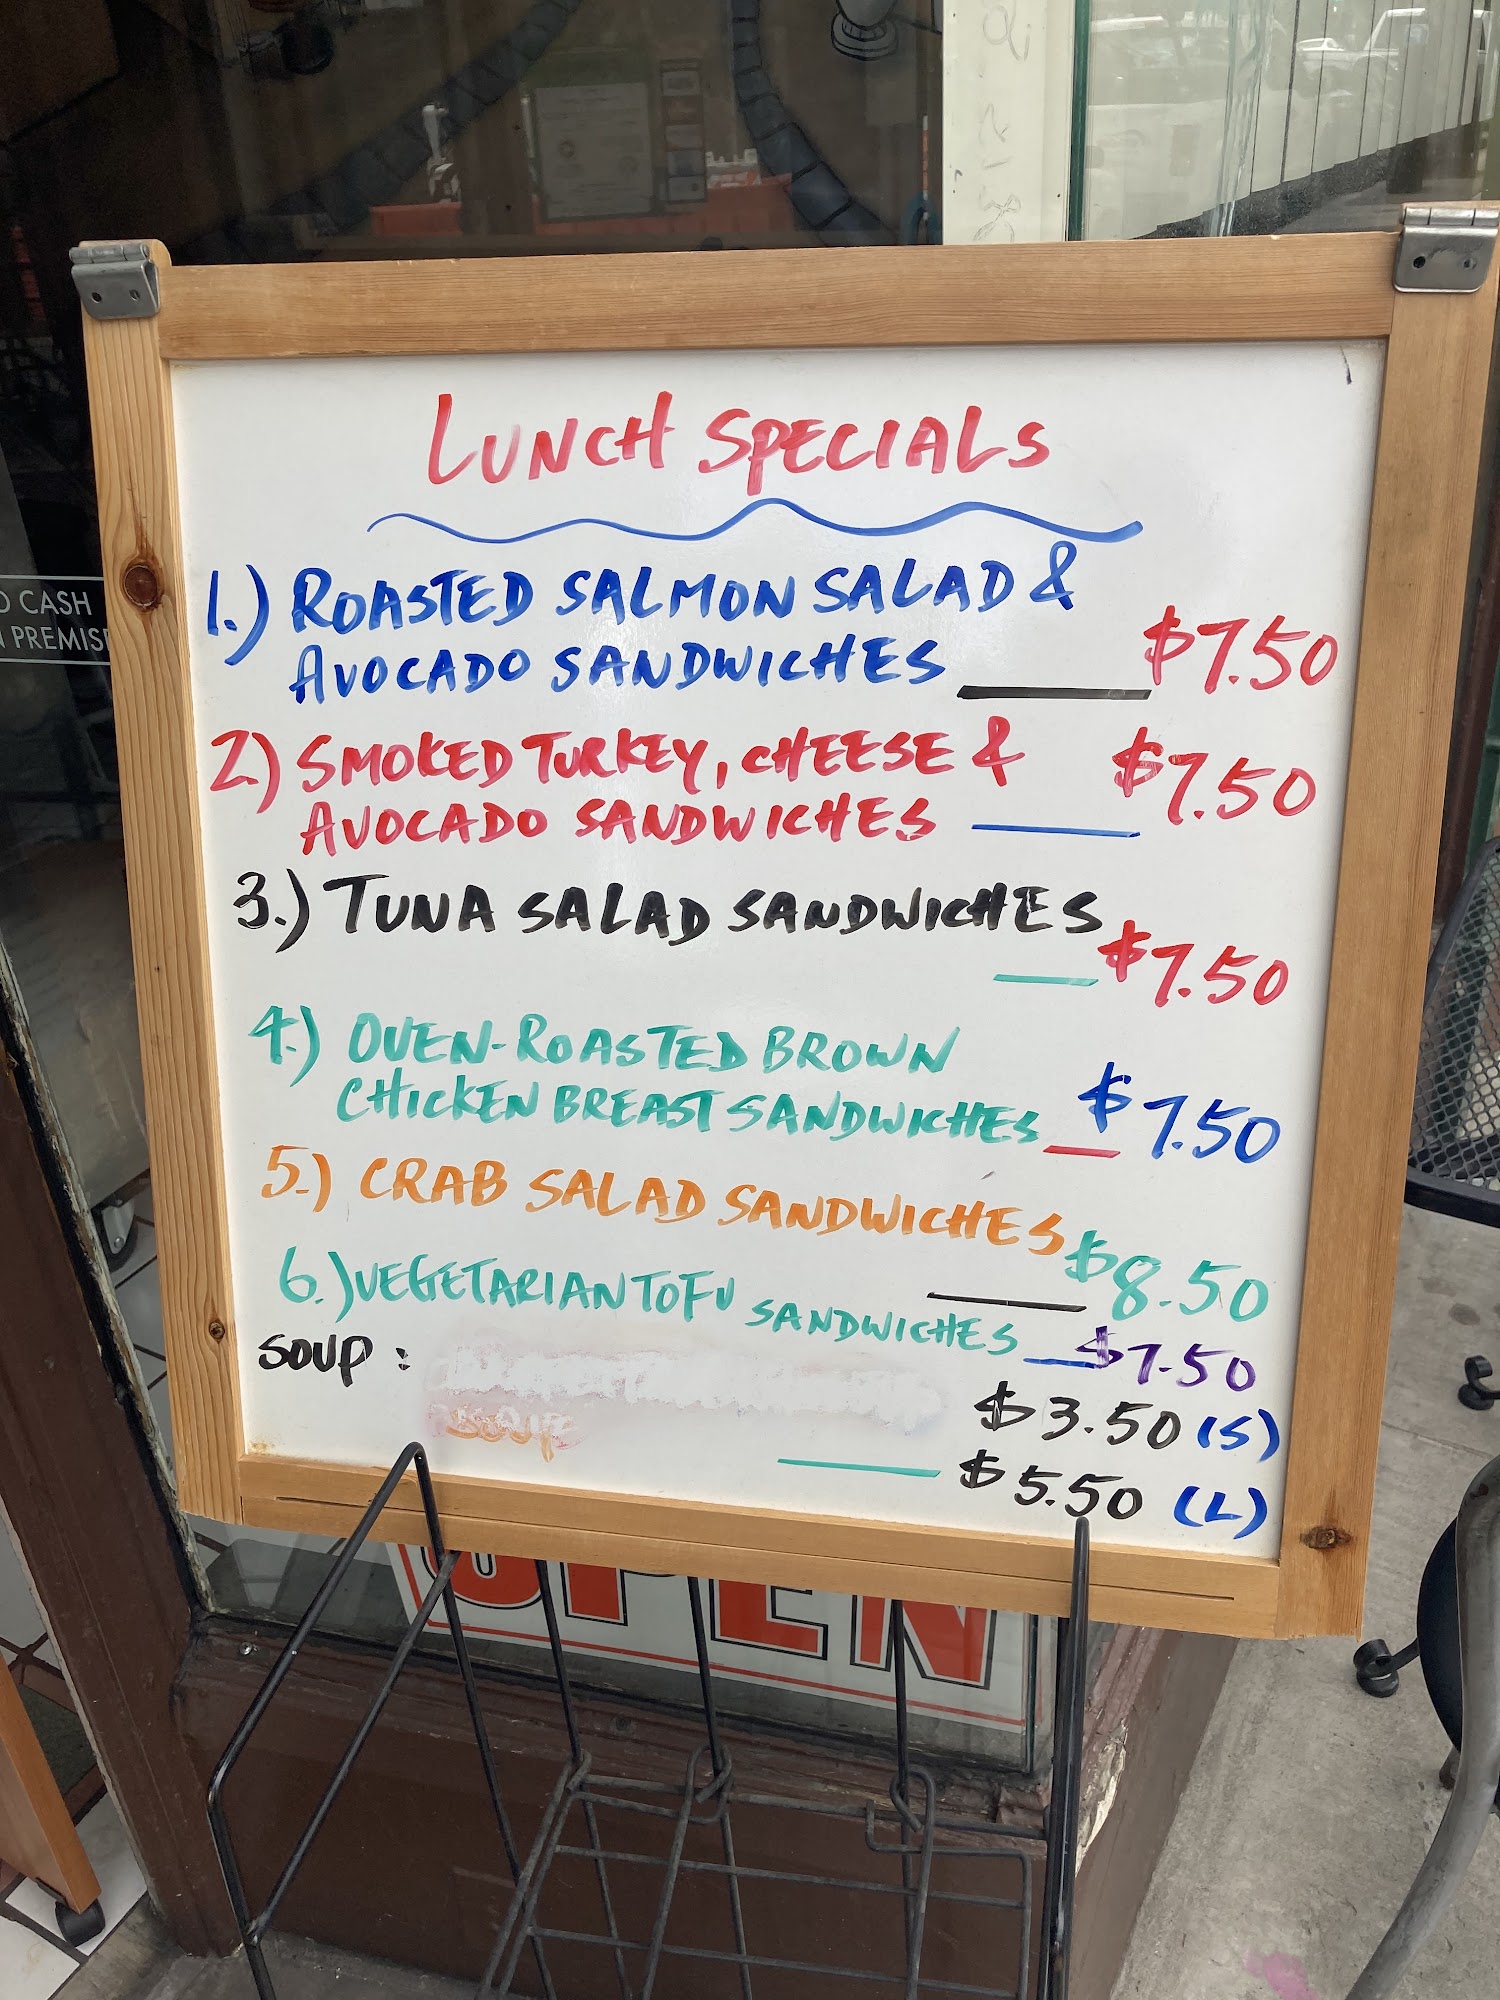 LUNCH SPECIALS
1.) ROASTED SALMON SALAD &
AVOCADO SANDWICHES $7.50
2.) SMOKED TURKEY, CHEESE &
AVOCADO SANDWICHES $7.50
3.) TUNA SALAD SANDWICHES
$7.50
4.) OVEN-ROASTED BROWN
CHICKEN BREAST SANDWICHES $7.50
5.) CRAB SALAD SANDWICHES
$8.50
6.) VEGETARIAN TOFU SANDWICHES $7.50
SOUP :
SOUP
$3.50 (S)
$5.50 (L)
OPEN
CASH
PREMISE